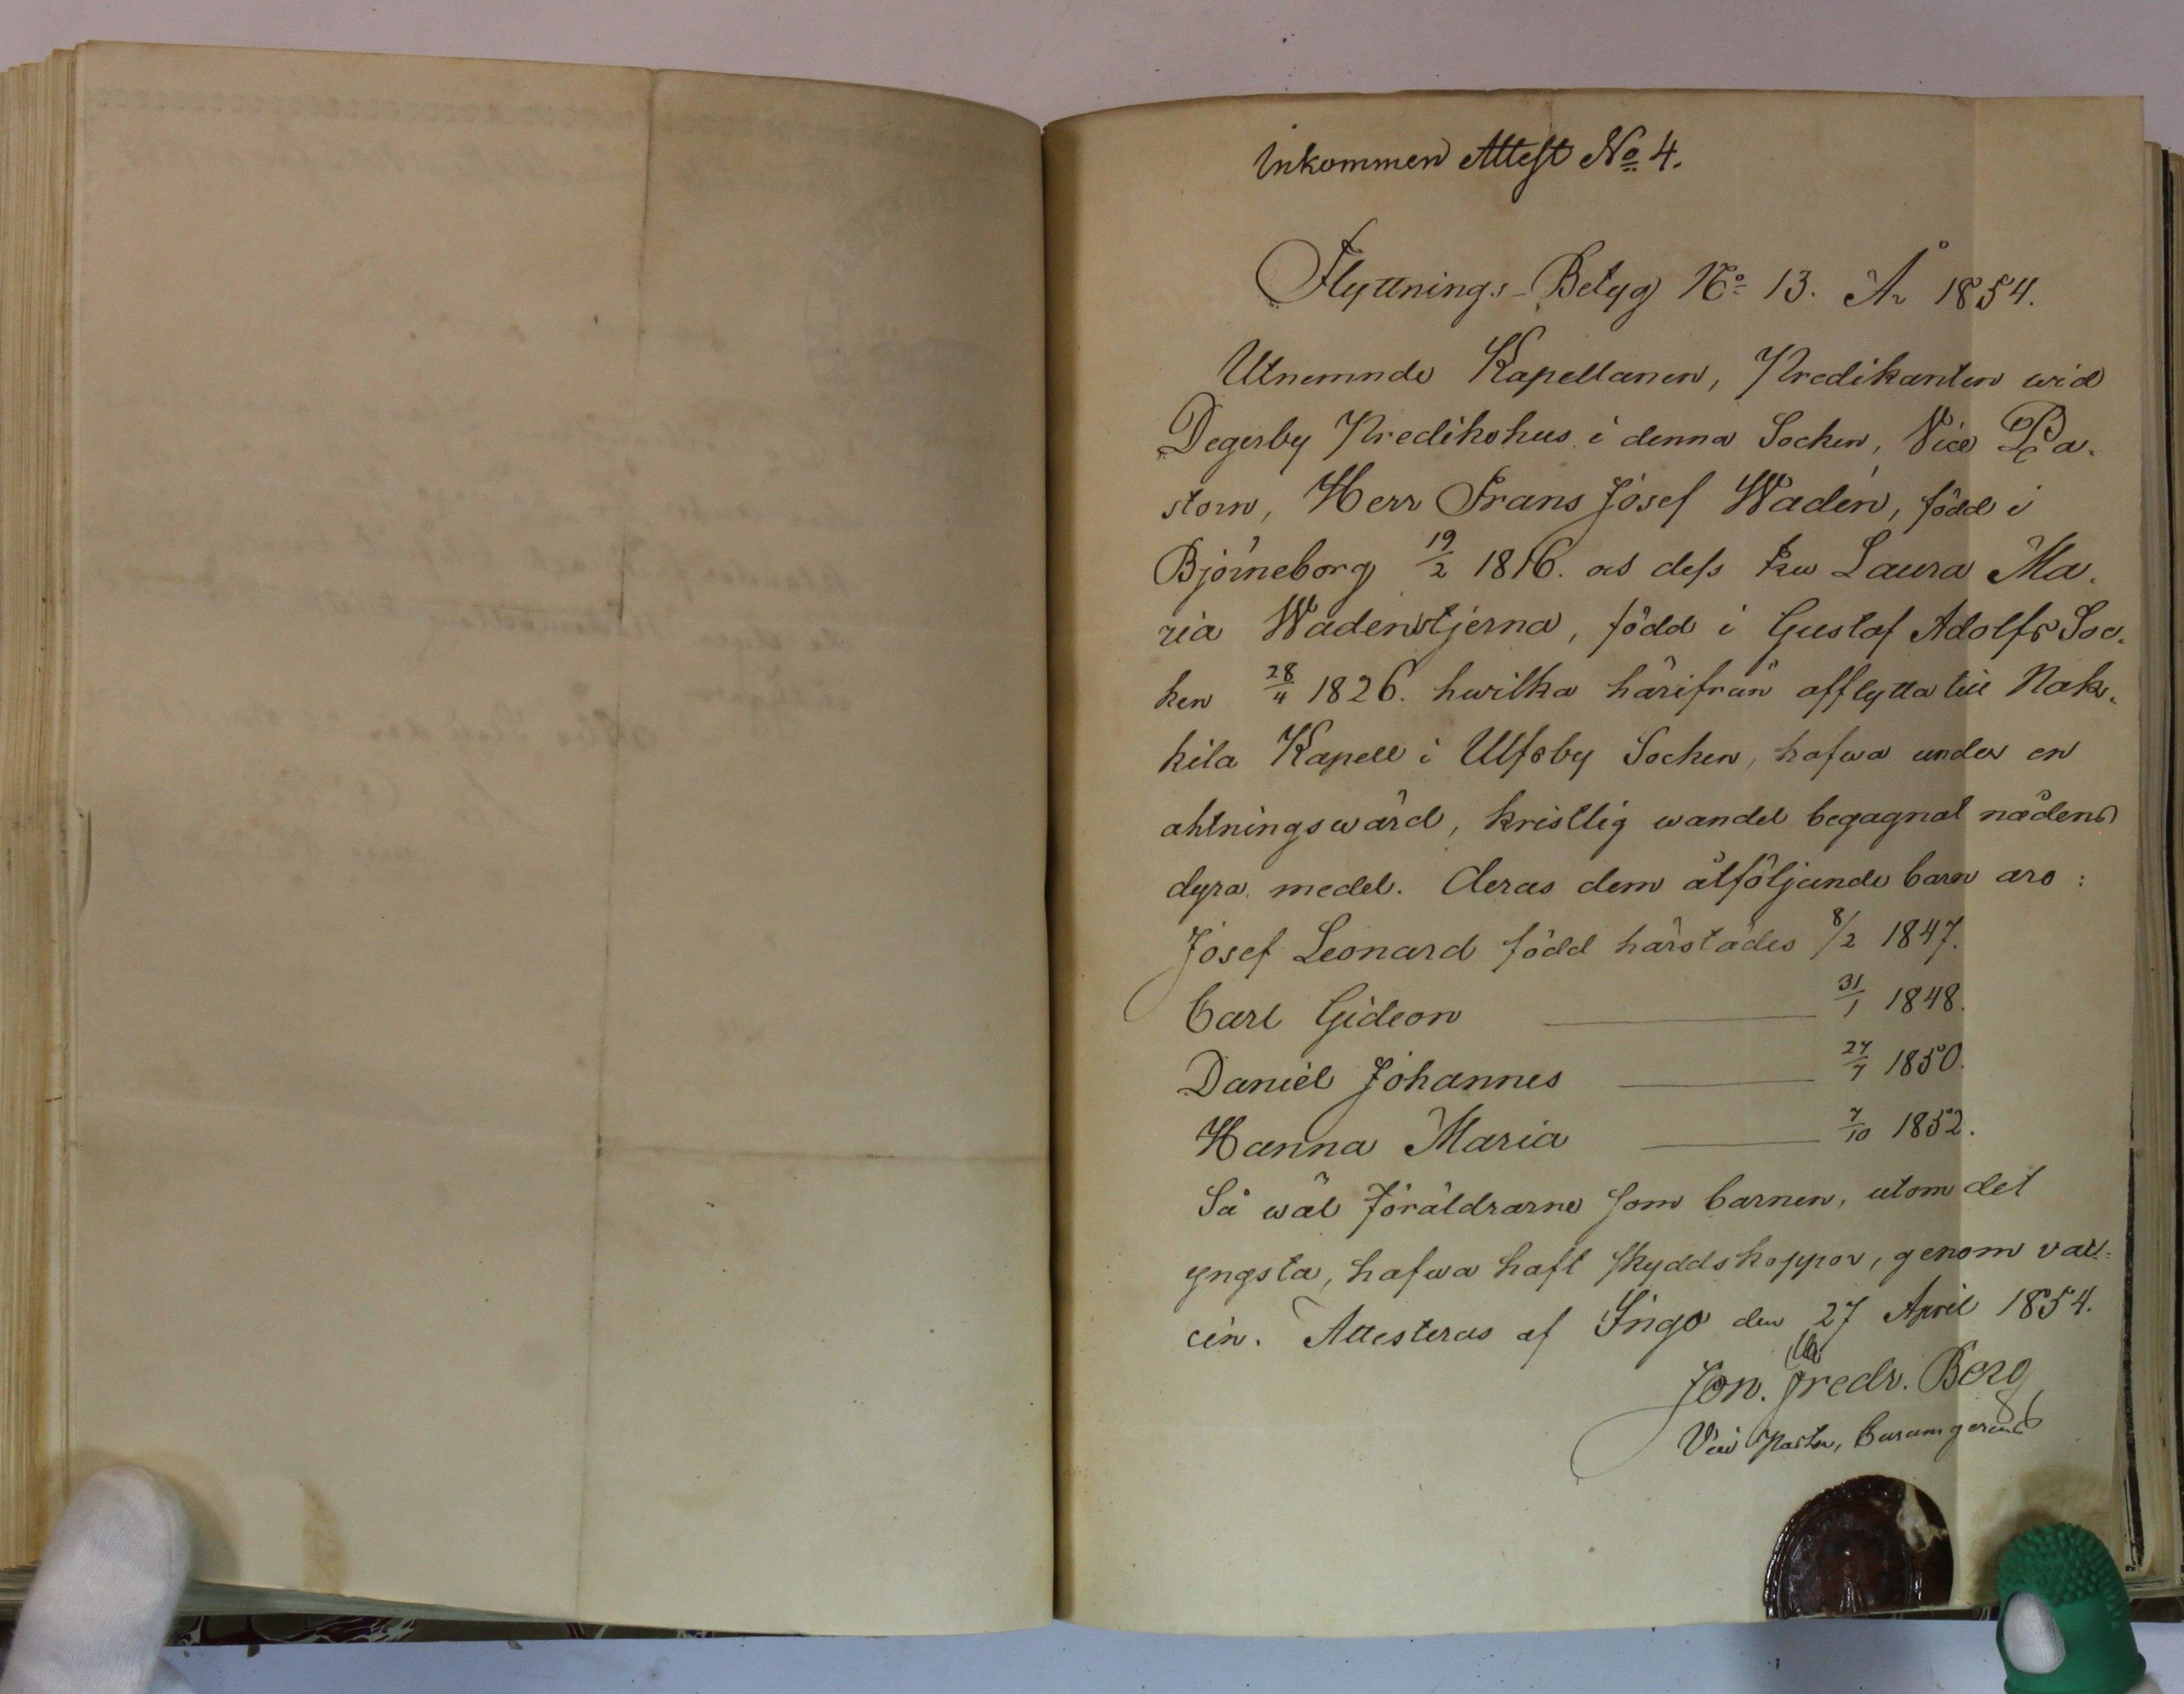 Inkommen Attest No 4.
Flyttnings-Betyg No 13. År 1854.
Utnemnde Kapellanen, Predikanten wid
Degerby Predikohus i denna Socken, Vice Pa-
storn, Herr Frans Josef Wadén, född i
Björneborg 19/2 1816. as dess Fru Laura Ma-
ria Wadenstjerna, född i Gustaf Adolfs Soc-
ken 28/4 1826. hwilka härifrån afflytta till Nak-
kila Kapell i Ulfsby Socken, hafwa under en
aktningswärd, kristlig wandel begagnat nådens
dyra medel. Deras dem åtföljande barn äro:
Josef Leonard född härstädes 8/2 1847.
Carl Gideon 31/1 1848.
Daniel Johannes 27/7 1850.
Hanna Maria 7/10 1852.
Så wäl föräldrarne som barnen, utom det
yngsta, hafwa haft skyddskoppor, genom vac-
cin. Attesteras af Ingo den 27 April 1854.
Jon. Fredr. Berg
Vice Pastor, Curam gerens